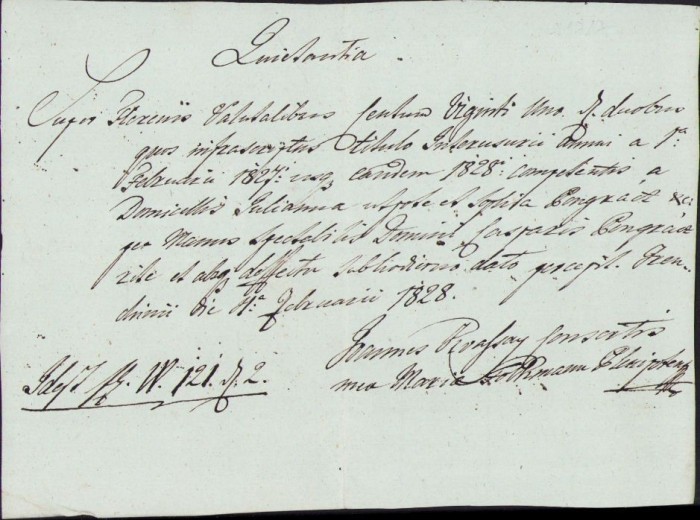 Quietantia
Super Florenis Valutalibus Centum Viginti Uno, d. duobus
quos infrascriptus titulo Interusurii Anni a 1a
Februarii 1827. usq, eandem 1828. competentis a
Domicellis Julianna et Sophia Pongrácz
per Manus Spectabilis Domini Gasparis Pongrácz
rite et absq deffectu sub hodierno dato percepi. Tren-
chinii die 4a Februarii 1828.
Joannes Consortis
mea Maria
Idest f. W. 121. d. 2.